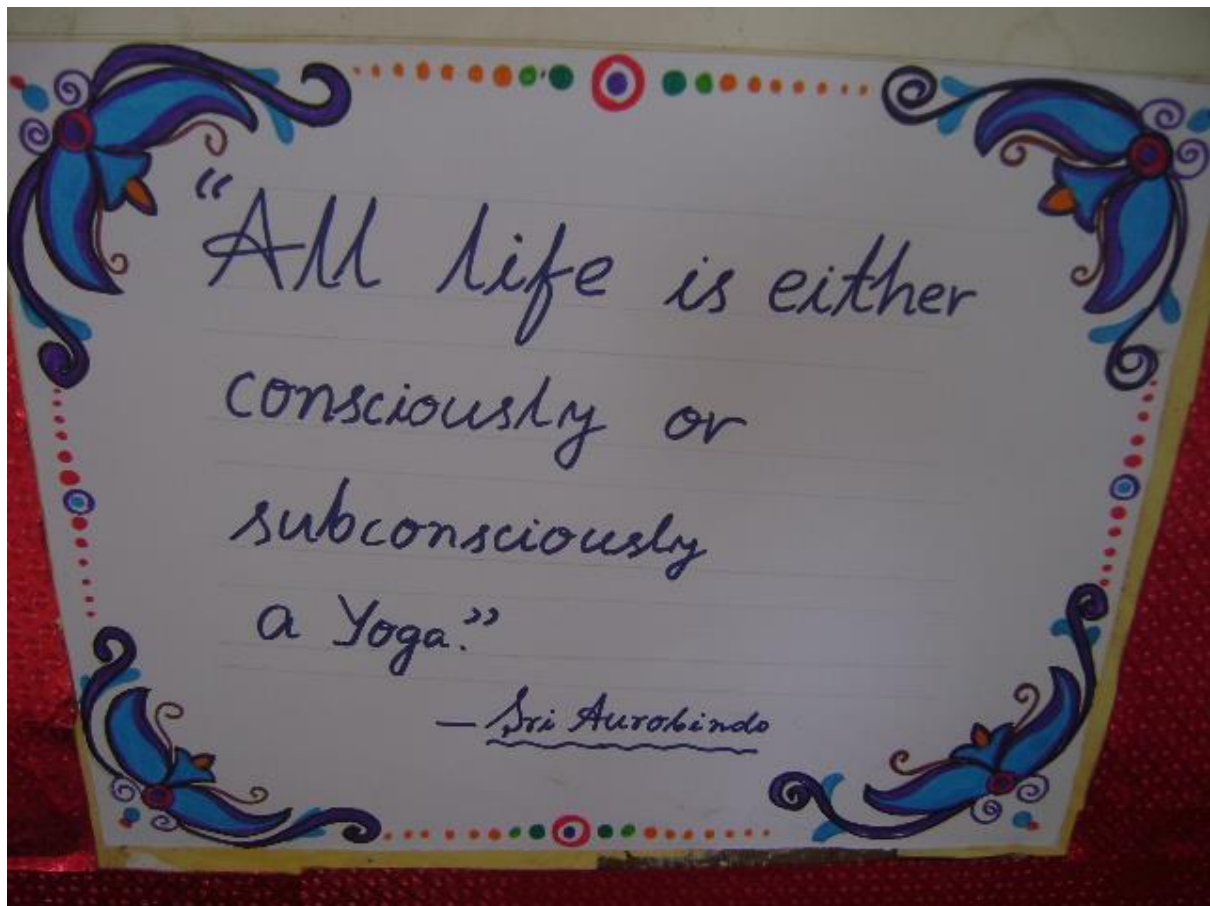 "All life is either
consciously or
subconsciously
a Yoga."
— Sri Aurobindo